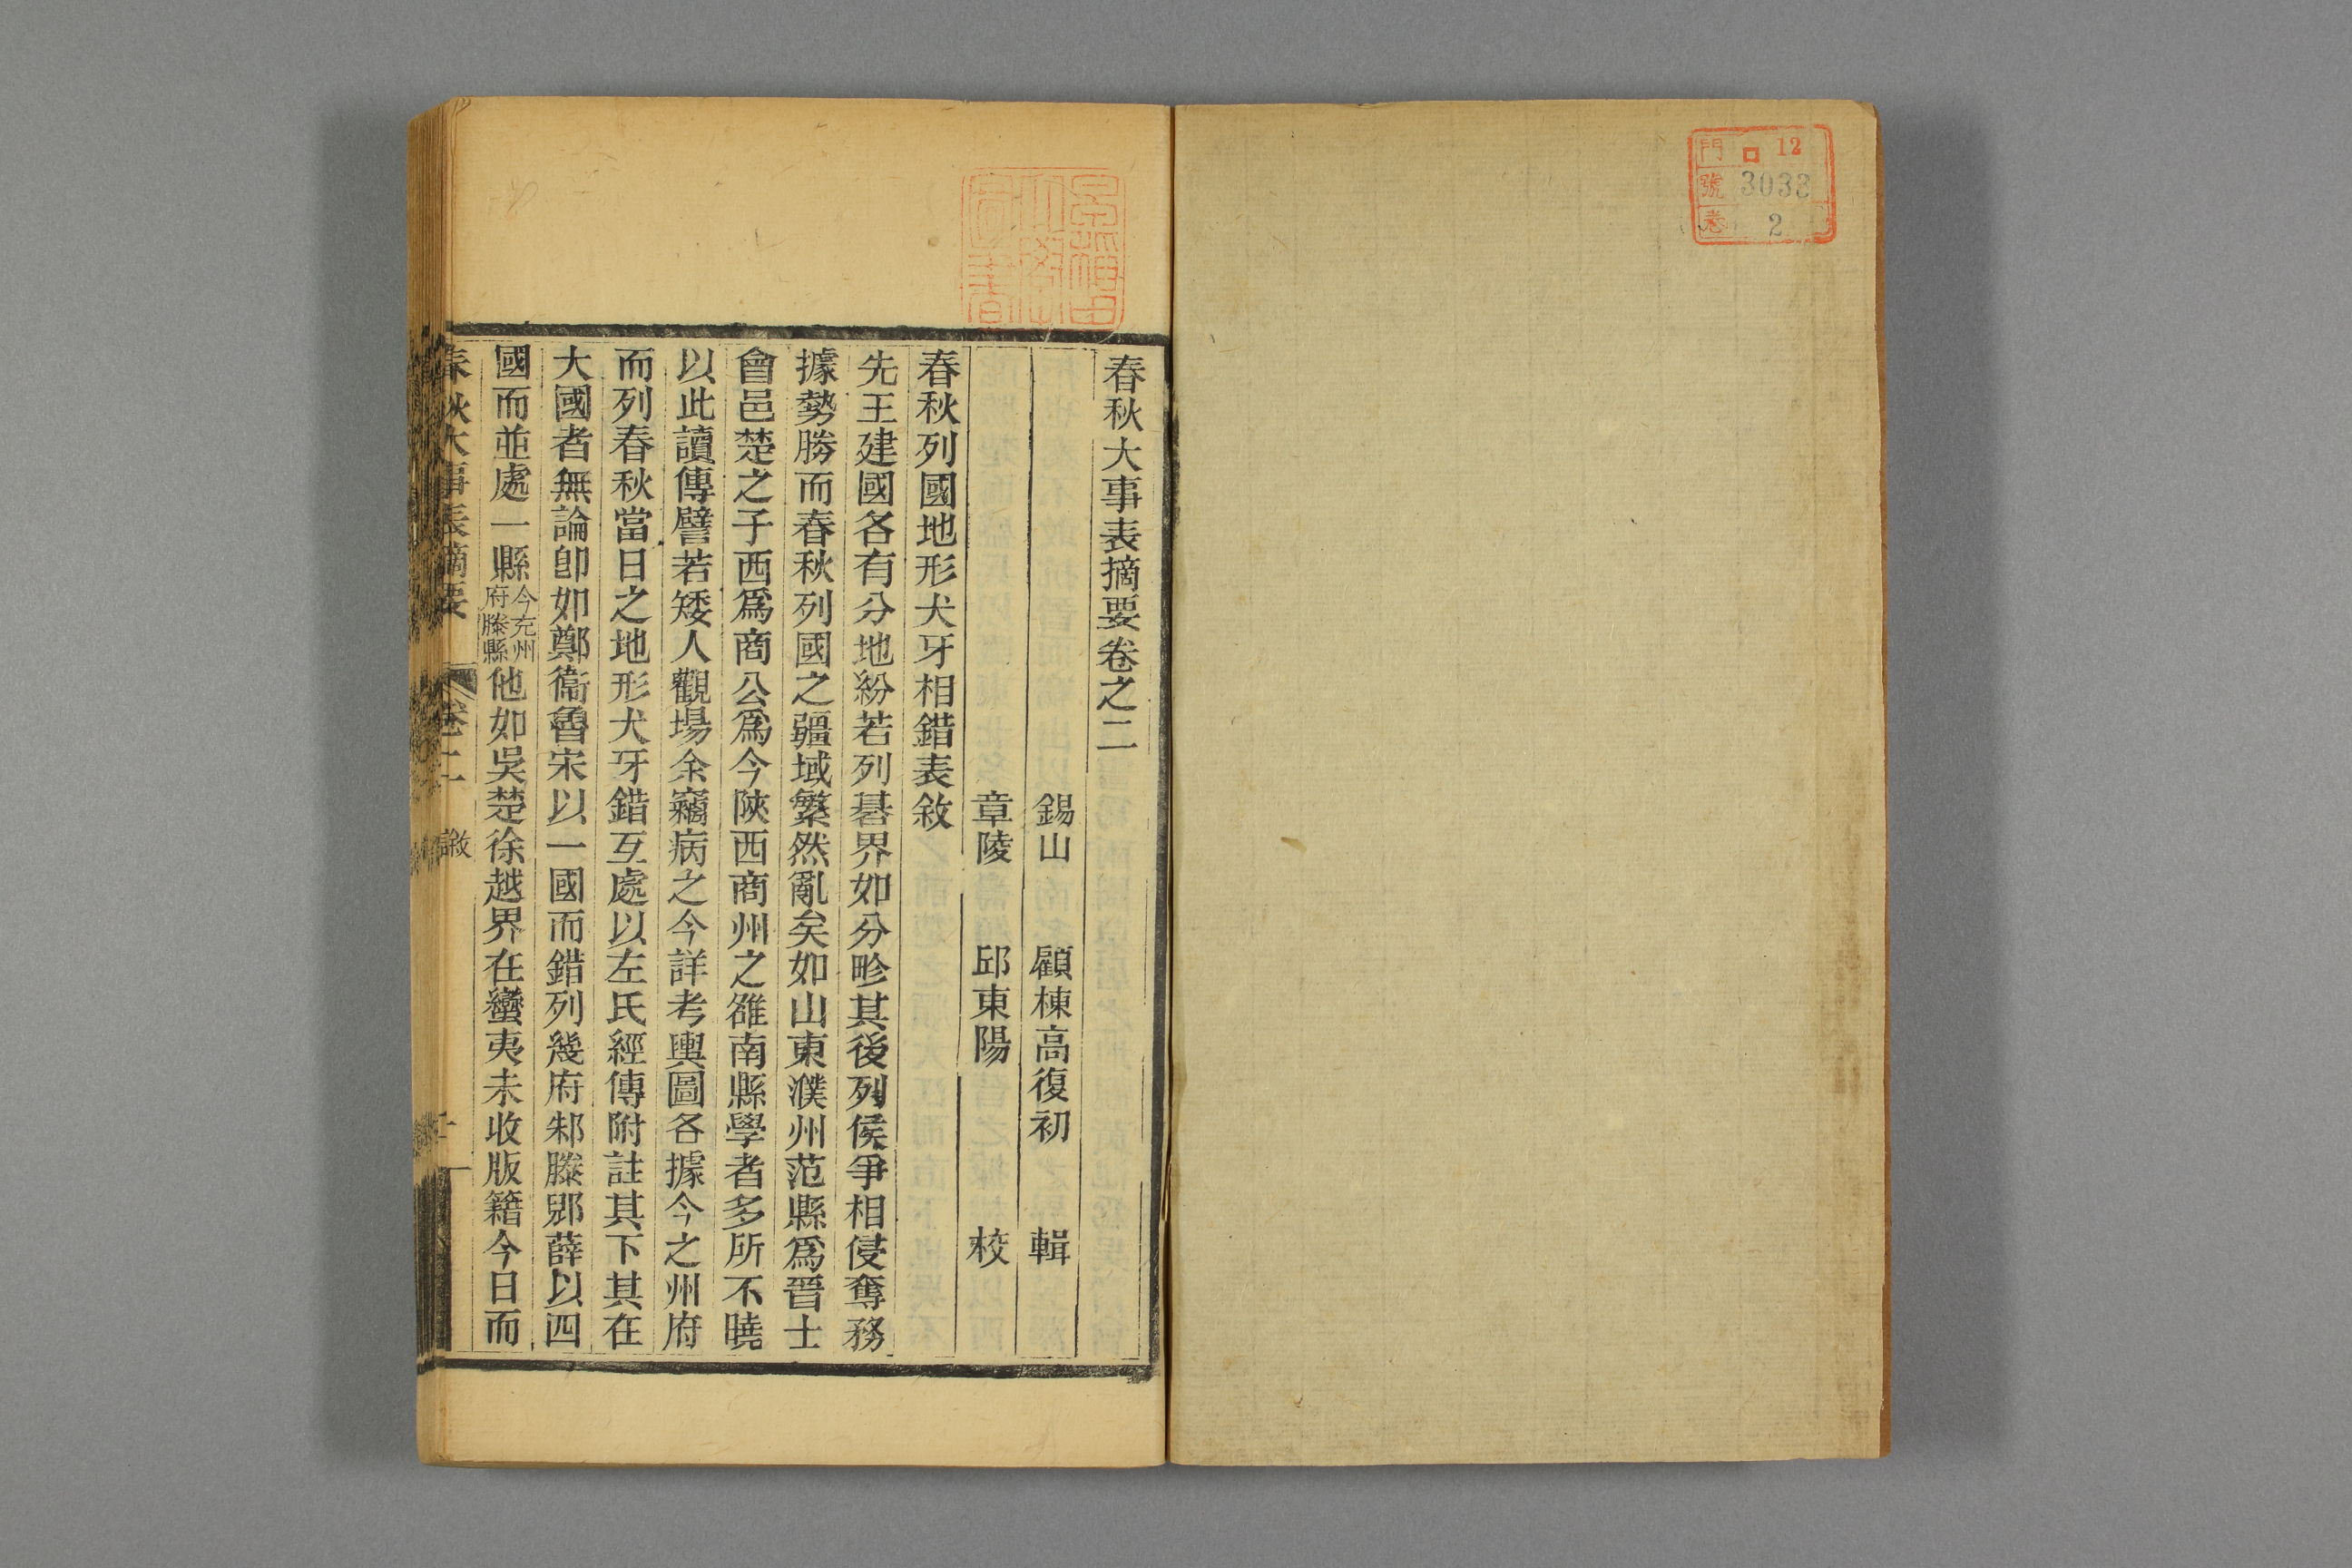 門 ロ 12
號 3038
卷 2
春秋大事表摘要卷之二
錫山 顧棟高復初 輯
章陵 邱東陽 校
春秋列國地形犬牙相錯表敘
先王建國各有分地紛若列碁界如分畛其後列侯爭相侵奪務
據勢勝而春秋列國之疆域繁然亂矣如山東濮州范縣爲晉士
會邑楚之子西爲商公爲今陝西商州之雒南縣學者多所不曉
以此讀傳譬若矮人觀場余竊病之今詳考輿圖各據今之州府
而列春秋當日之地形犬牙錯互處以左氏經傳附註其下其在
大國者無論卽如鄭衞魯宋以一國而錯列幾府邾滕郳薛以四
國而並處一縣今兖州府滕縣他如吳楚徐越界在蠻夷未收版籍今日而
春秋大事表摘要 卷二 敘